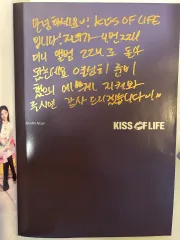 안녕하세요! KISS OF LIFE
입니다! 저희가 4번째
미니 앨범 224로 돌아
왔는데요 열심히 준비
했으니 예쁘게 지켜봐
주시면 감사 드리겠습니다!
KISS OF LIFE